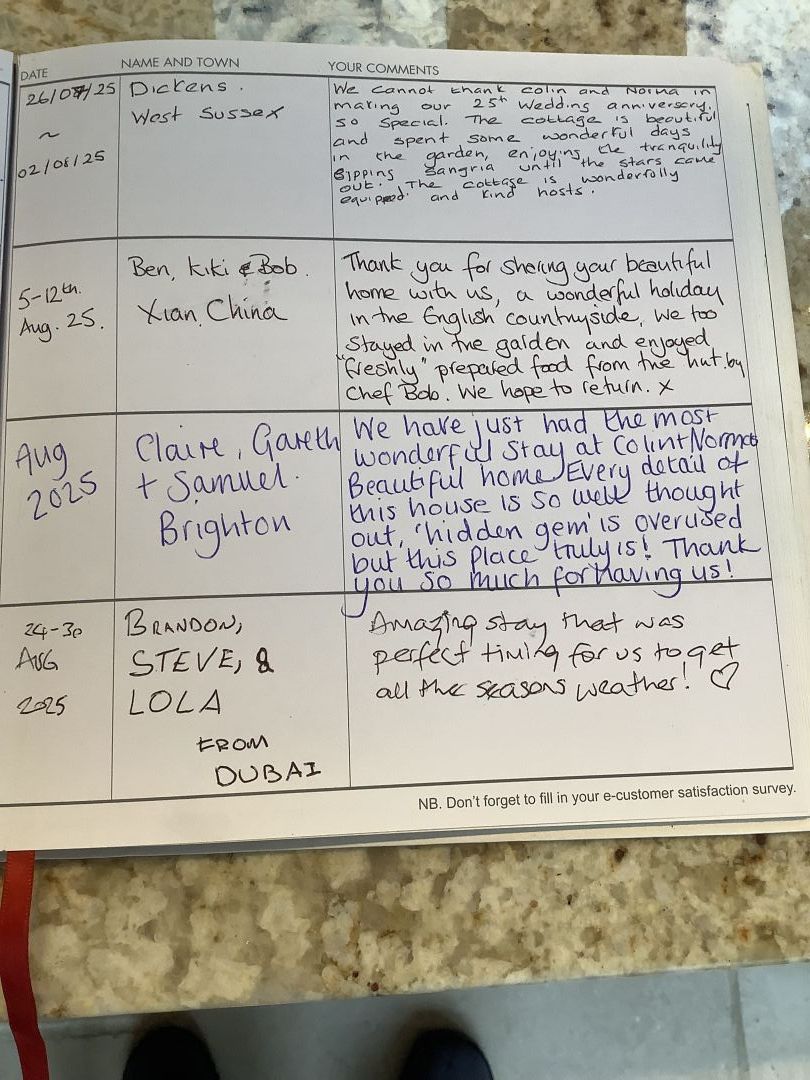 DATE
NAME AND TOWN
YOUR COMMENTS
26/07/25
~
02/08/25
Dickens.
West Sussex
We cannot thank colin and Norma in
making our 25th Wedding anniversary.
so special. The cottage is beautiful
and spent some wonderful days
in the garden, enjoying the tranquility
sipping sangria until the stars came
out. The cottage is wonderfully
equipped and kind hosts.
5-12th.
Aug. 25.
Ben, Kiki & Bob.
Xian, China
Thank you for sharing your beautiful
home with us, a wonderful holiday
in the English countryside. We too
Stayed in the garden and enjoyed
"freshly" prepared food from the hut by
Chef Bob. We hope to return. x
Aug
2025
Claire, Gareth
+ Samuel.
Brighton
We have just had the most
wonderful stay at Colin+Norma's
Beautiful home. Every detail of
this house is so well thought
out, 'hidden gem' is overused
but this place truly is! Thank
you so much for having us!
24-30
AUG
2025
BRANDON,
STEVE, &
LOLA
FROM
DUBAI
Amazing stay that was
perfect timing for us to get
all the seasons weather! ♡
NB. Don't forget to fill in your e-customer satisfaction survey.